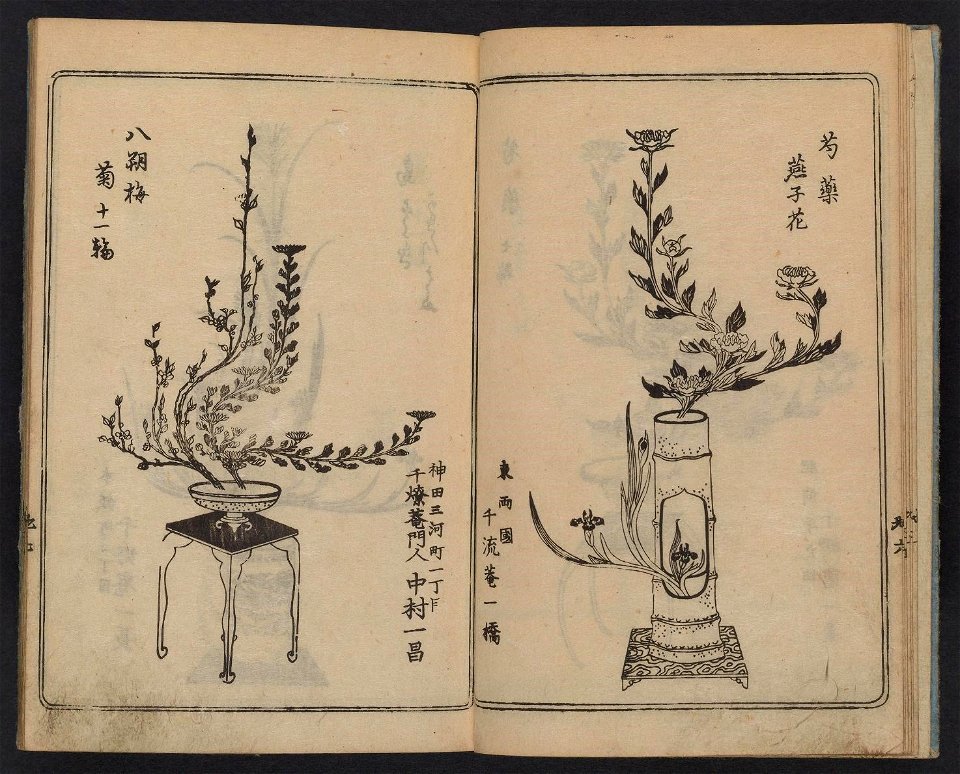 芍藥
燕子花
東両國
千流菴一橋
八朔梅
菊十一輪
神田三河町一丁目
千燎菴門人中村一昌